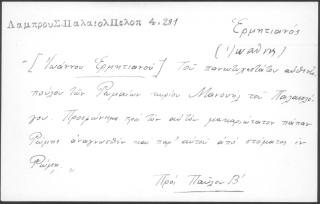 ΛαμπρουΣ.ΠαλαιολΠελοπ 4.291
Ἑρμητιανός
(Ἰωάννης)
-[Ἰωάννου Ἑρμητιανοῦ] Τοῦ πανευτυχεστάτου αὐθεντο
πούλου τῶν Ρωμαίων κυρίου Μανουὴλ τοῦ Παλαιολό
γου. Προσφώνημα πρὸς τὸν αὐτὸν μακαριώτατον πάπαν
Ρώμης ἀναγνωσθὲν καὶ παρ' αὐτοῦ ἀπὸ στόματος ἐν
Ρώμῃ.
Πρὸς Παῦλον Β'